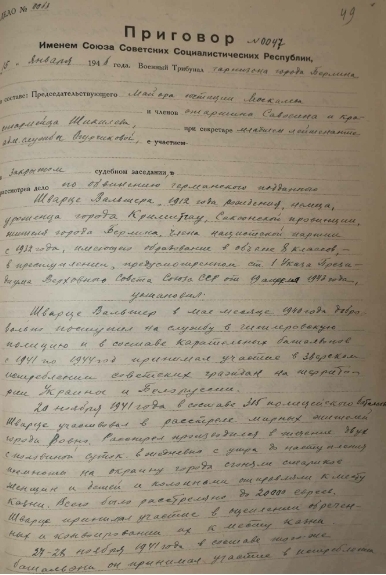 ДЕЛО №
49
Приговор №0047
Именем Союза Советских Социалистических Республик,
января 194 года. Военный Трибунал гарнизона города Берлина
составе: Председательствующего Майора юстиции
и членов старшины Савосина и
при секретаре младшем лейтенанте
службы, с участием
в закрытом судебном заседании, в
рассмотрел дело по обвинению германского подданного
Шварце Вальтера, 1912 года рождения, немца,
уроженца города, Саксонской провинции,
жителя города Берлина, члена нацистской партии
с 1932 года, имеющего образование в объёме 8 классов, –
в преступлении, предусмотренном ст. 1 Указа Прези-
диума Верховного Совета Союза ССР от 19 апреля 1943 года,
установил:
Шварце Вальтер в мае месяце 1940 года добро-
вольно поступил на службу в гитлеровскую
полицию и в составе карательных батальонов
с 1941 по 1944 год принимал участие в зверском
истреблении советских граждан на террито-
рии Украины и Белоруссии.
20 ноября 1941 года в составе 315 полицейского батальона
Шварце участвовал в расстреле мирных жителей
города Ровно. Расстрел производился в течение двух
с половиной суток. Ежедневно с утра до наступления
темноты на окраину города сгоняли стариков
женщин и детей и колоннами отправляли к месту
казни. Всего было расстреляно до 20000 евреев.
Шварце принимал участие в оцеплении обречён-
ных и конвоировании их к месту казни
27-28 ноября 1941 года в составе того же
батальона он принимал участие в истреблении